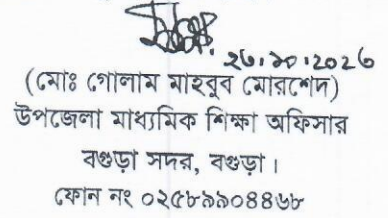 ২৬.১০.২০২৫
(মোঃ গোলাম মাহবুব মোরশেদ)
উপজেলা মাধ্যমিক শিক্ষা অফিসার
বগুড়া সদর, বগুড়া।
ফোন নং ০২৫৮৯৯০৪৪৬৮